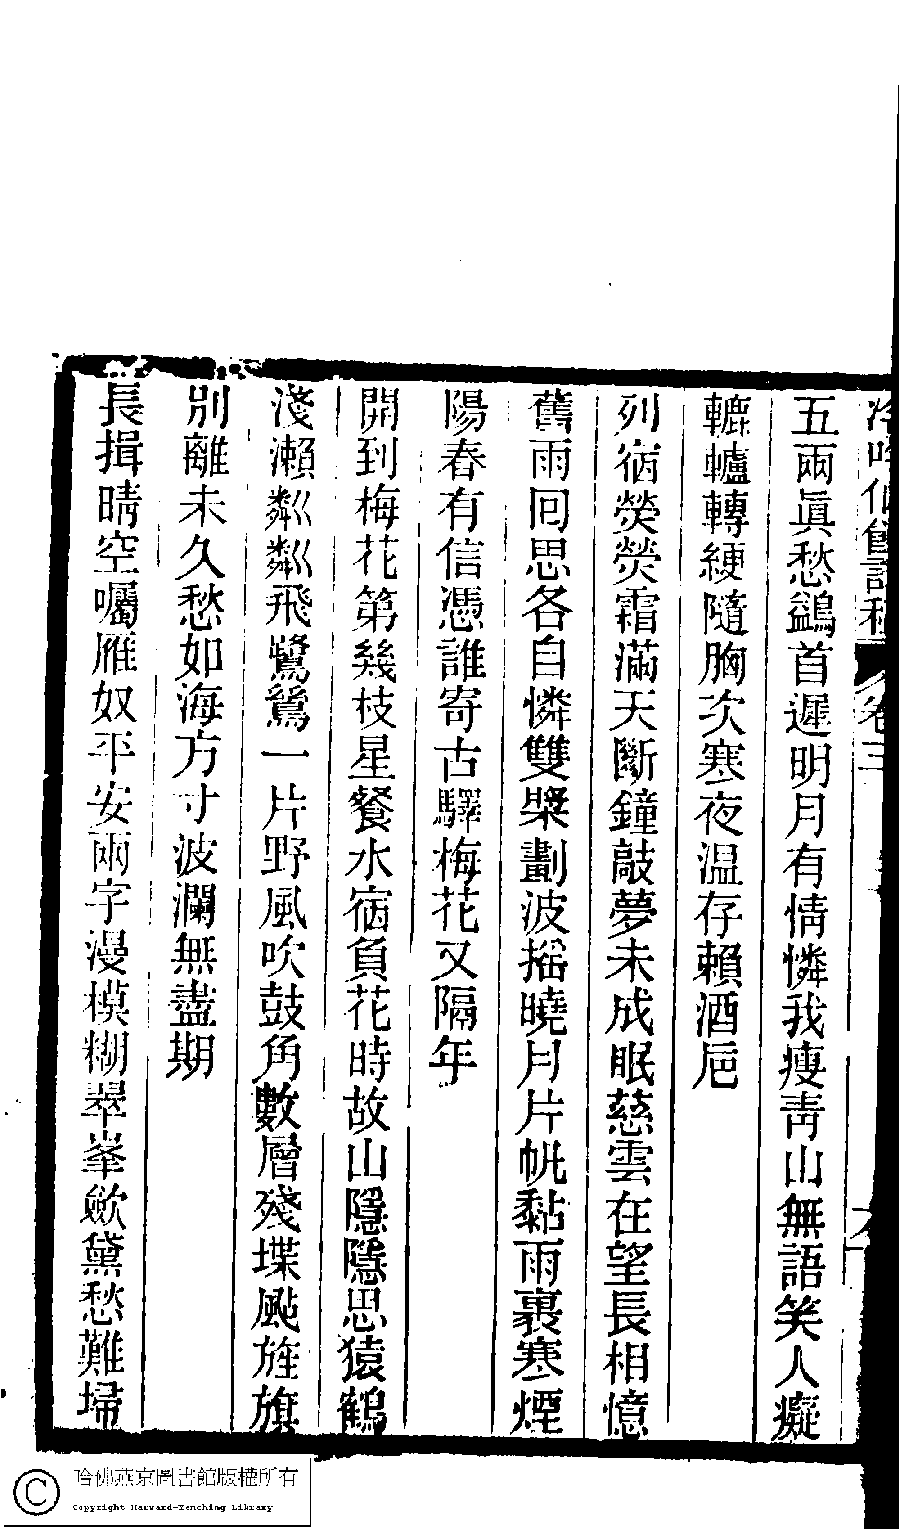 冷吟仙館詩稿 卷三
五兩眞愁鷁首遲明月有情憐我瘦靑山無語笑人癡
轆轤轉綆隨胸次寒夜温存賴酒卮
列宿熒熒霜滿天斷鐘敲夢未成眠慈雲在望長相憶
舊雨回思各自憐雙槳劃波搖曉月片帆黏雨裹寒煙
陽春有信憑誰寄古驛梅花又隔年
開到梅花第幾枝星餐水宿負花時故山隱隱思猿鶴
淺瀨粼粼飛鷺鶿一片野風吹鼓角數層殘堞颭旌旗
別離未久愁如海方寸波瀾無盡期
長揖晴空囑雁奴平安兩字漫模糊翠峯歛黛愁難埽
哈佛燕京圖書館版權所有
Copyright Harvard-Yenching Library